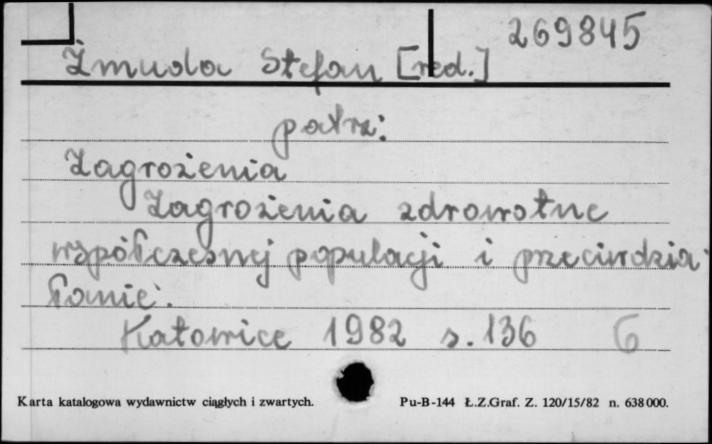 269845
Żmuda Stefan [red.]
patrz:
Zagrożenia
Zagrożenia zdrowotne
współczesnej populacji i przeciwdzia-
łanie.
Katowice 1982 s. 136 6
Karta katalogowa wydawnictw ciągłych i zwartych. Pu-B-144 Ł.Z.Graf. Z. 120/15/82 n. 638000.